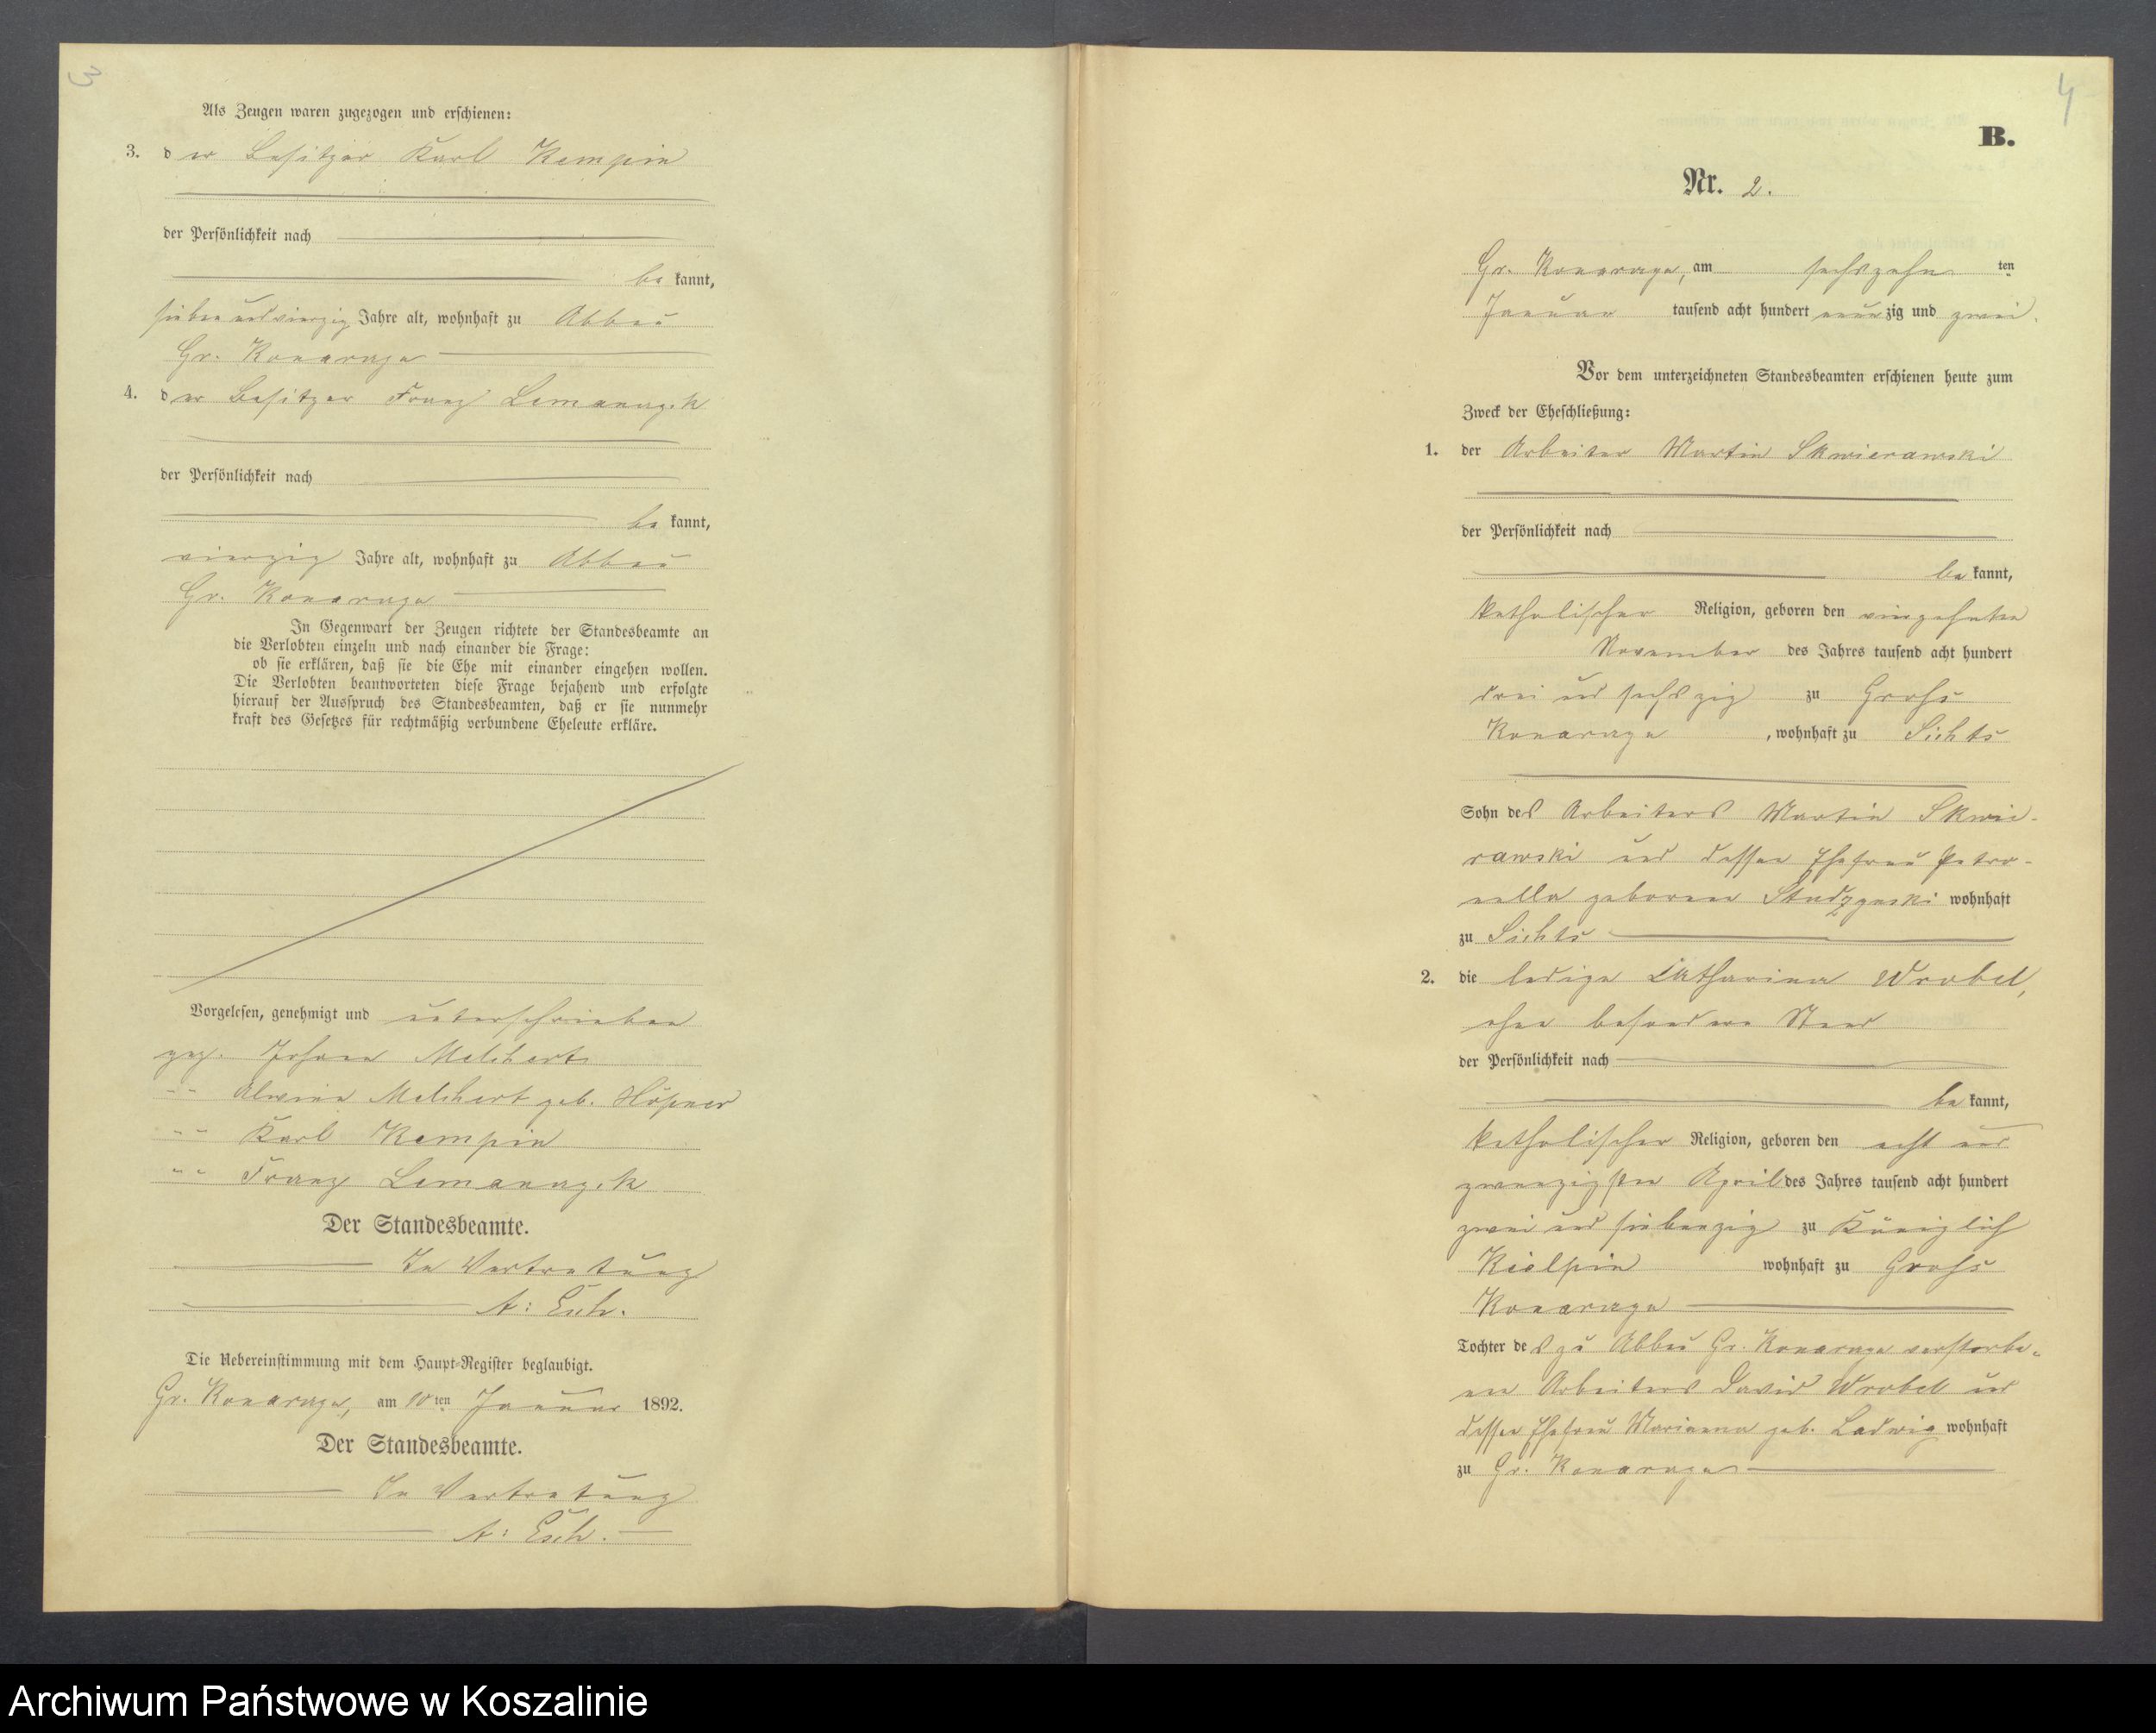 3
Als Zeugen waren zugezogen und erschienen:
3. der Besitzer Karl Kempin
der Persönlichkeit nach
bekannt,
siebenundvierzig Jahre alt, wohnhaft zu Abbau
Gr. Konarczyn
4. der Besitzer Franz Lemanczik
der Persönlichkeit nach
bekannt,
vierzig Jahre alt, wohnhaft zu Abbau
Gr. Konarczyn
In Gegenwart der Zeugen richtete der Standesbeamte an
die Verlobten einzeln und nach einander die Frage:
ob sie erklären, daß sie die Ehe mit einander eingehen wollen.
Die Verlobten beantworteten diese Frage bejahend und erfolgte
hierauf der Ausspruch des Standesbeamten, daß er sie nunmehr
kraft des Gesetzes für rechtmäßig verbundene Eheleute erkläre.
Vorgelesen, genehmigt und unterschrieben
gez. Johann Melchert
" Alwine Melchert geb. Höpner
" Karl Kempin
" Franz Lemanczik
Der Standesbeamte.
In Vertretung
A: Esch.
Die Uebereinstimmung mit dem Haupt-Register beglaubigt.
Gr. Konarczyn, am 10ten Januar 1892.
Der Standesbeamte.
In Vertretung
A: Esch.
4
B.
Nr. 2.
Gr. Konarczyn, am sechszehnten
Januar tausend acht hundert neunzig und zwei.
Vor dem unterzeichneten Standesbeamten erschienen heute zum
Zweck der Eheschließung:
1. der Arbeiter Martin Skwierawski
der Persönlichkeit nach
bekannt,
katholischer Religion, geboren den vierzehnten
November des Jahres tausend acht hundert
drei und sechszig zu Groß
Konarczyn, wohnhaft zu Sichts
Sohn des Arbeiters Martin Skwie-
rawski und dessen Ehefrau Petro-
nella geborene Studzynski wohnhaft
zu Sichts
2. die ledige Catharina Wrobel,
ohne besonderen Stand
der Persönlichkeit nach
bekannt,
katholischer Religion, geboren den acht und
zwanzigsten April des Jahres tausend acht hundert
zwei und siebenzig zu Königlich
Kielpin wohnhaft zu Groß
Konarczyn
Tochter des zu Abbau Gr. Konarczyn verstorbe-
nen Arbeiters David Wrobel und
dessen Ehefrau Marianna geb. Ladwig wohnhaft
zu Gr. Konarczyn
Archiwum Państwowe w Koszalinie